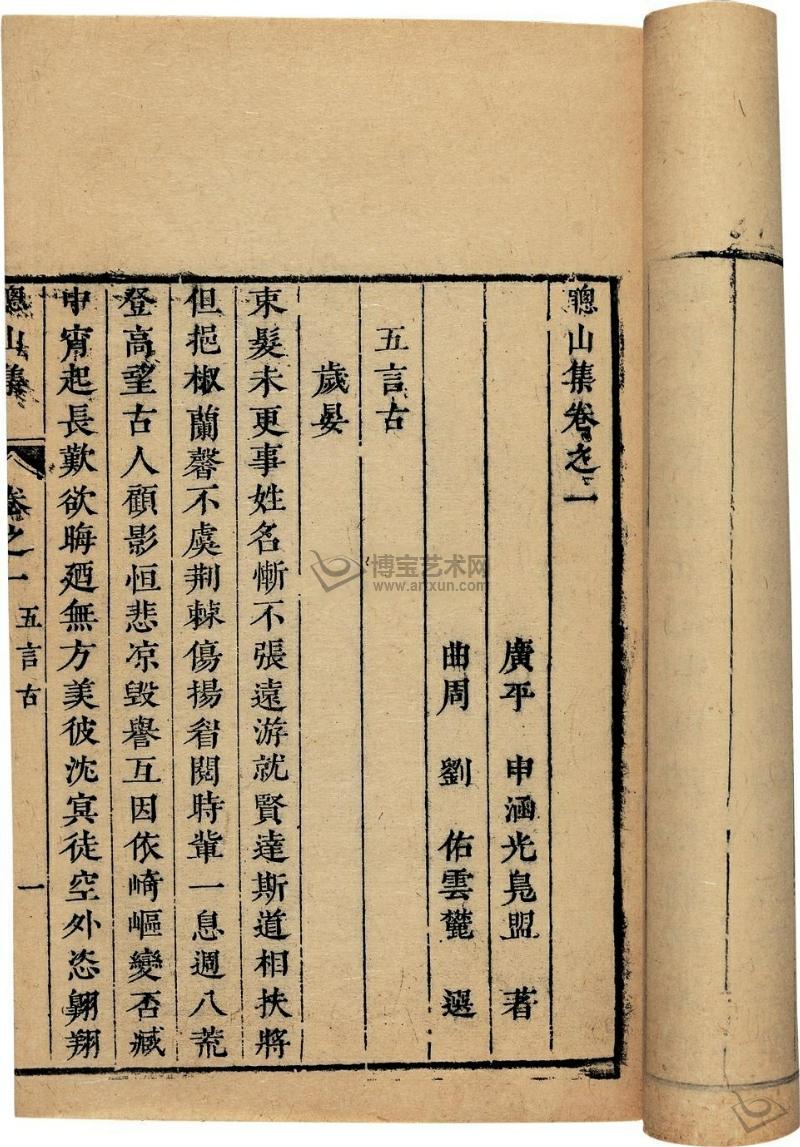 聰山集卷之一
廣平 申涵光鳧盟 著
曲周 劉 佑雲麓 選
五言古
歲晏
束髮未更事姓名慚不張遠游就賢達斯道相扶將
但挹椒蘭馨不虞荆棘傷揚眉閱時輩一息週八荒
登高望古人顧影恒悲凉毀譽互因依崎嶇變否臧
中宵起長歎欲晦廼無方美彼沈冥徒空外恣翱翔
聰山集 卷之一 五言古 一
博宝艺术网
www.artxun.com